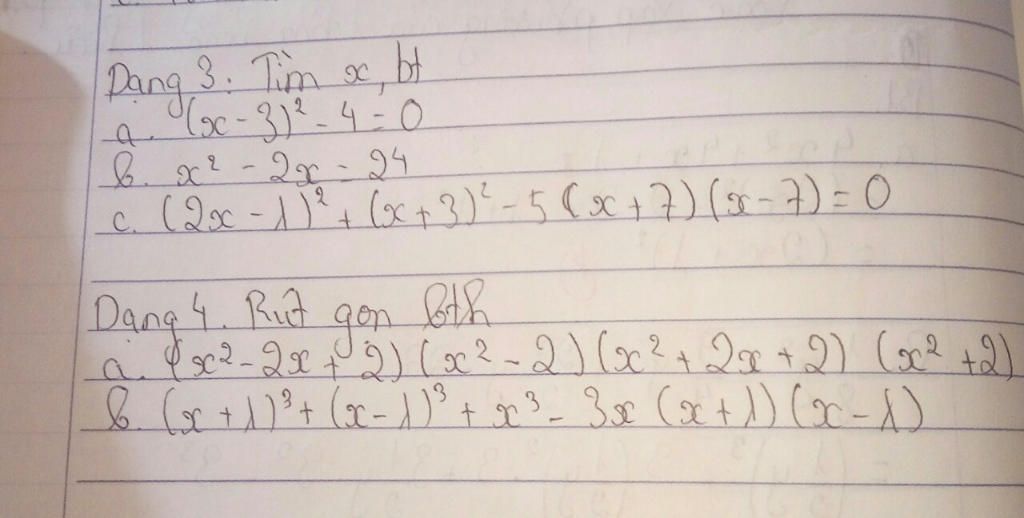 Dạng 3: Tìm x, bt
a. (x - 3)² - 4 = 0
b. x² - 2x = 24
c. (2x - 1)² + (x + 3)² - 5 (x + 7) (x - 7) = 0
Dạng 4. Rút gọn bth
a. (x² - 2x + 2) (x² - 2) (x² + 2x + 2) (x² + 2)
b. (x + 1)³ + (x - 1)³ + x³ - 3x (x + 1) (x - 1)